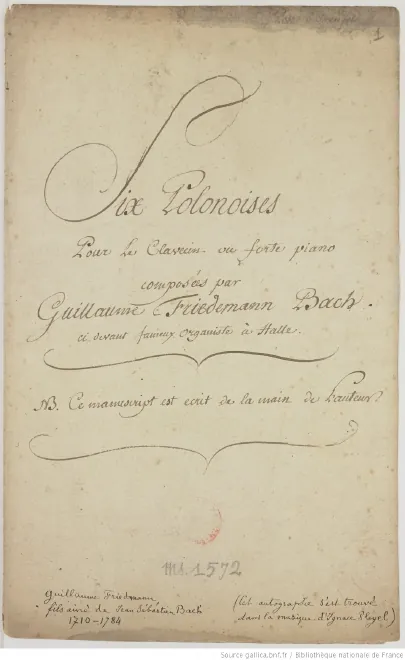 1
Six Polonoises
Pour le Clavecin ou forte piano
composées par
Guillaume Friedemann Bach.
ci devant fameux organiste à Halle.
NB. Ce manuscript est ecrit de la main de l'auteur
Ms. 1572
Guillaume Friedmann,
fils ainé de Jean Sébastien Bach
1710-1784
(Cet autographe s'est trouvé
dans la musique d'Ignace Pleyel.)
Source gallica.bnf.fr / Bibliothèque nationale de France